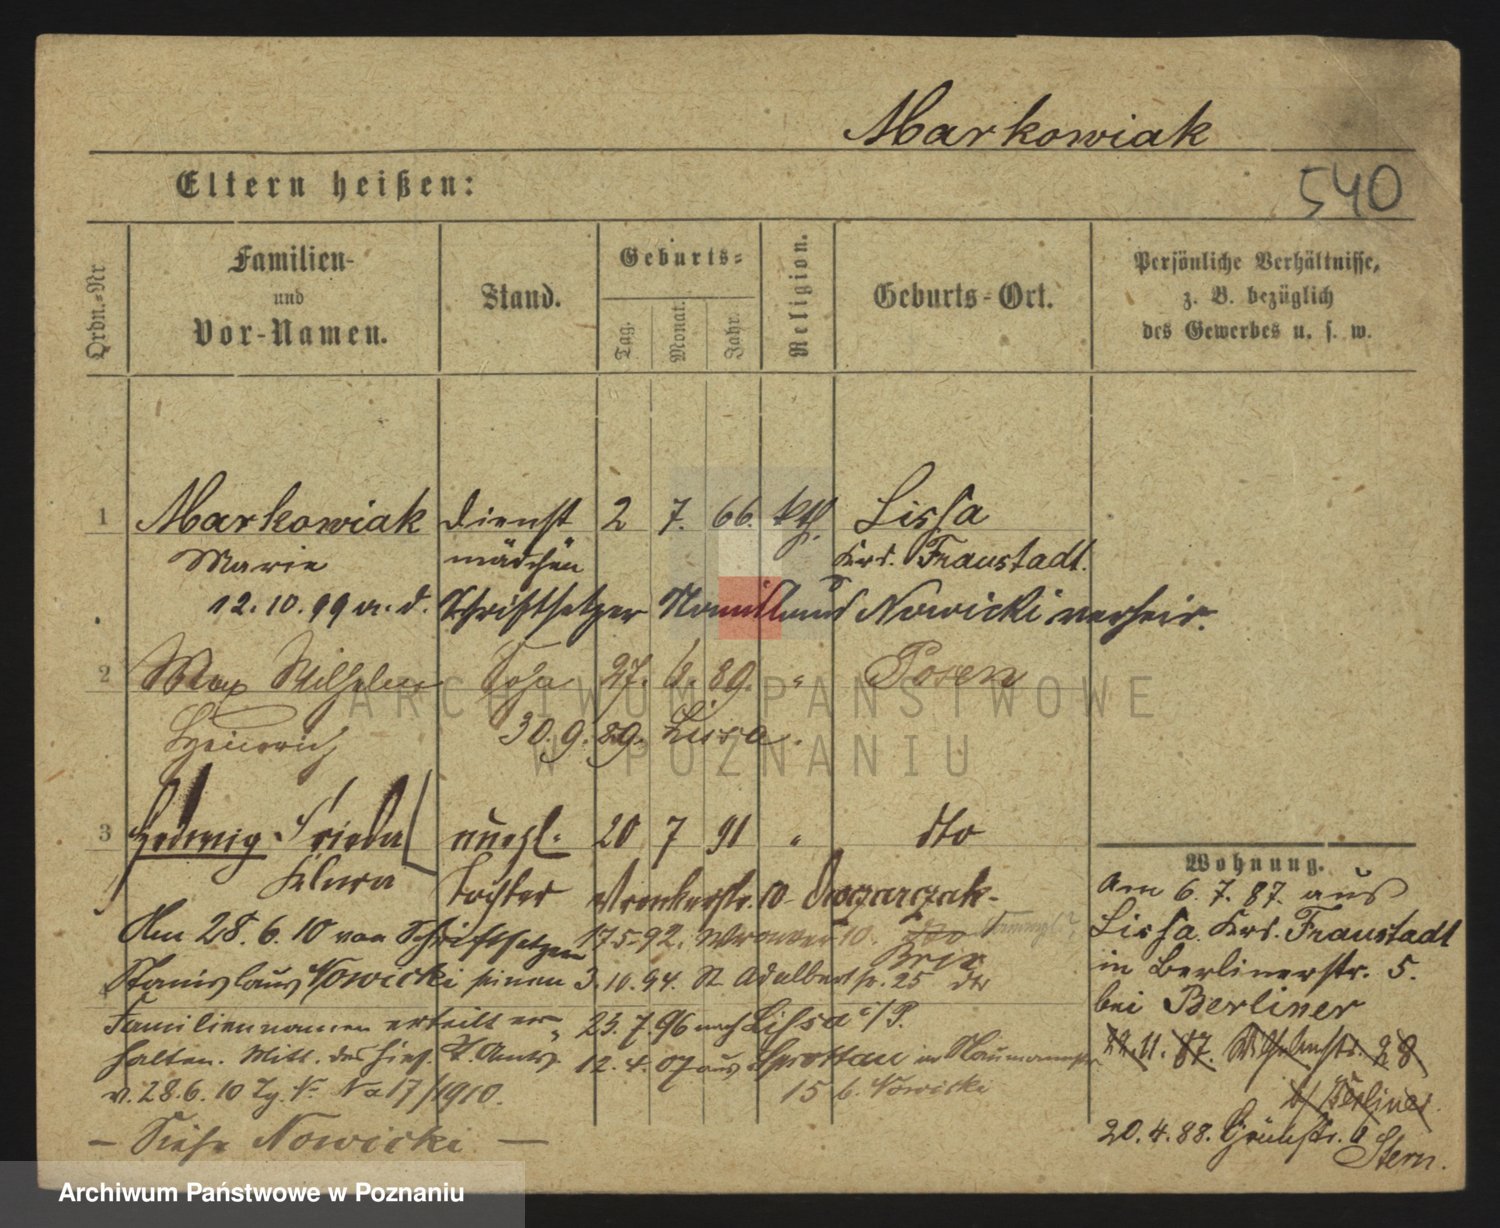 Markowiak
Eltern heißen:
540
Ordn.-Nr
Familien-
und
Vor-Namen.
Stand.
Geburts-
Tag.
Monat.
Jahr.
Religion.
Geburts-Ort.
Persönliche Verhältnisse,
z. B. bezüglich
des Gewerbes u. s. w.
1 Markowiak Dienst 2 7. 66. kth. Lissa
Marie mädchen Krs. Fraustadt.
12.10.99 a. d. Schriftsetzer Nowicki verheir.
2 Max Wilhelm Sohn 27. 6. 89. " Posen
Heinrich 30.9.89. Lissa.
3 Hedwig Frieda unehl. 20 7 91 " dto
Klara Tochter Wronkerstr. 10
Am 28.6.10 von Schriftsetzer 17.5.92. 10.
Stanislaus Nowicki seinen 3.10.94. St. Adalbertstr. 25
4
Familiennamen erteilt er- 23.7.96 nach Lissa i/P.
halten. Mitt. des hies. 12.4.07 aus Sprottau in Naumannstr.
v. 28.6.10 17/1910. 15 b. Nowicki
— Siehe Nowicki —
Wohnung.
Am 6.7.87. aus
Lissa Krs. Fraustadt
in Berlinerstr. 5.
bei Berliner
22.11.87. Wilhelmstr. 28
b/ Berliner.
20.4.88. Grünstr.
Stern.
ARCHIWUM PAŃSTWOWE
W POZNANIU
Archiwum Państwowe w Poznaniu